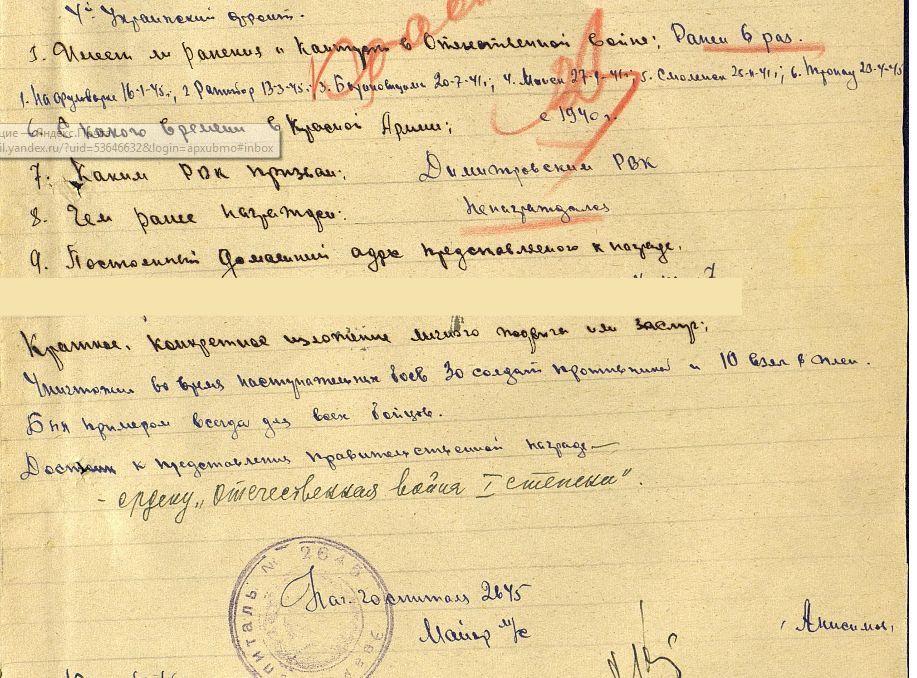 4й Украинский фронт.
5. Имеет ли ранения и контузии в Отечественной войне; Ранен 6 раз.
16-1-45г., 2 Ратибор 13-3-45г. 3. 20-7-41г.; 4. 27-9-41г.; 5. Смоленск 25-11-41г.; 6. Тропау 23-4-45
6. С какого времени в Красной Армии; с 1940г.
ail.yandex.ru/?uid=53646632&login=apxubmo#inbox
7. Каким РВК призван: Димитровским РВК
8. Чем ранее награжден: Ненаграждался
9. Постоянный домашний адрес представляемого к награде.
Краткое, конкретное изложение личного подвига или заслуг;
Уничтожил во время наступательных боев 30 солдат противника и 10 взял в плен.
Был примером всегда для всех бойцов.
Достоин к представлению правительственной награде
- ордену „Отечественная война I степени".
Нач. Госпиталя 2645
Майор м/с
Анисимов
№ 2645